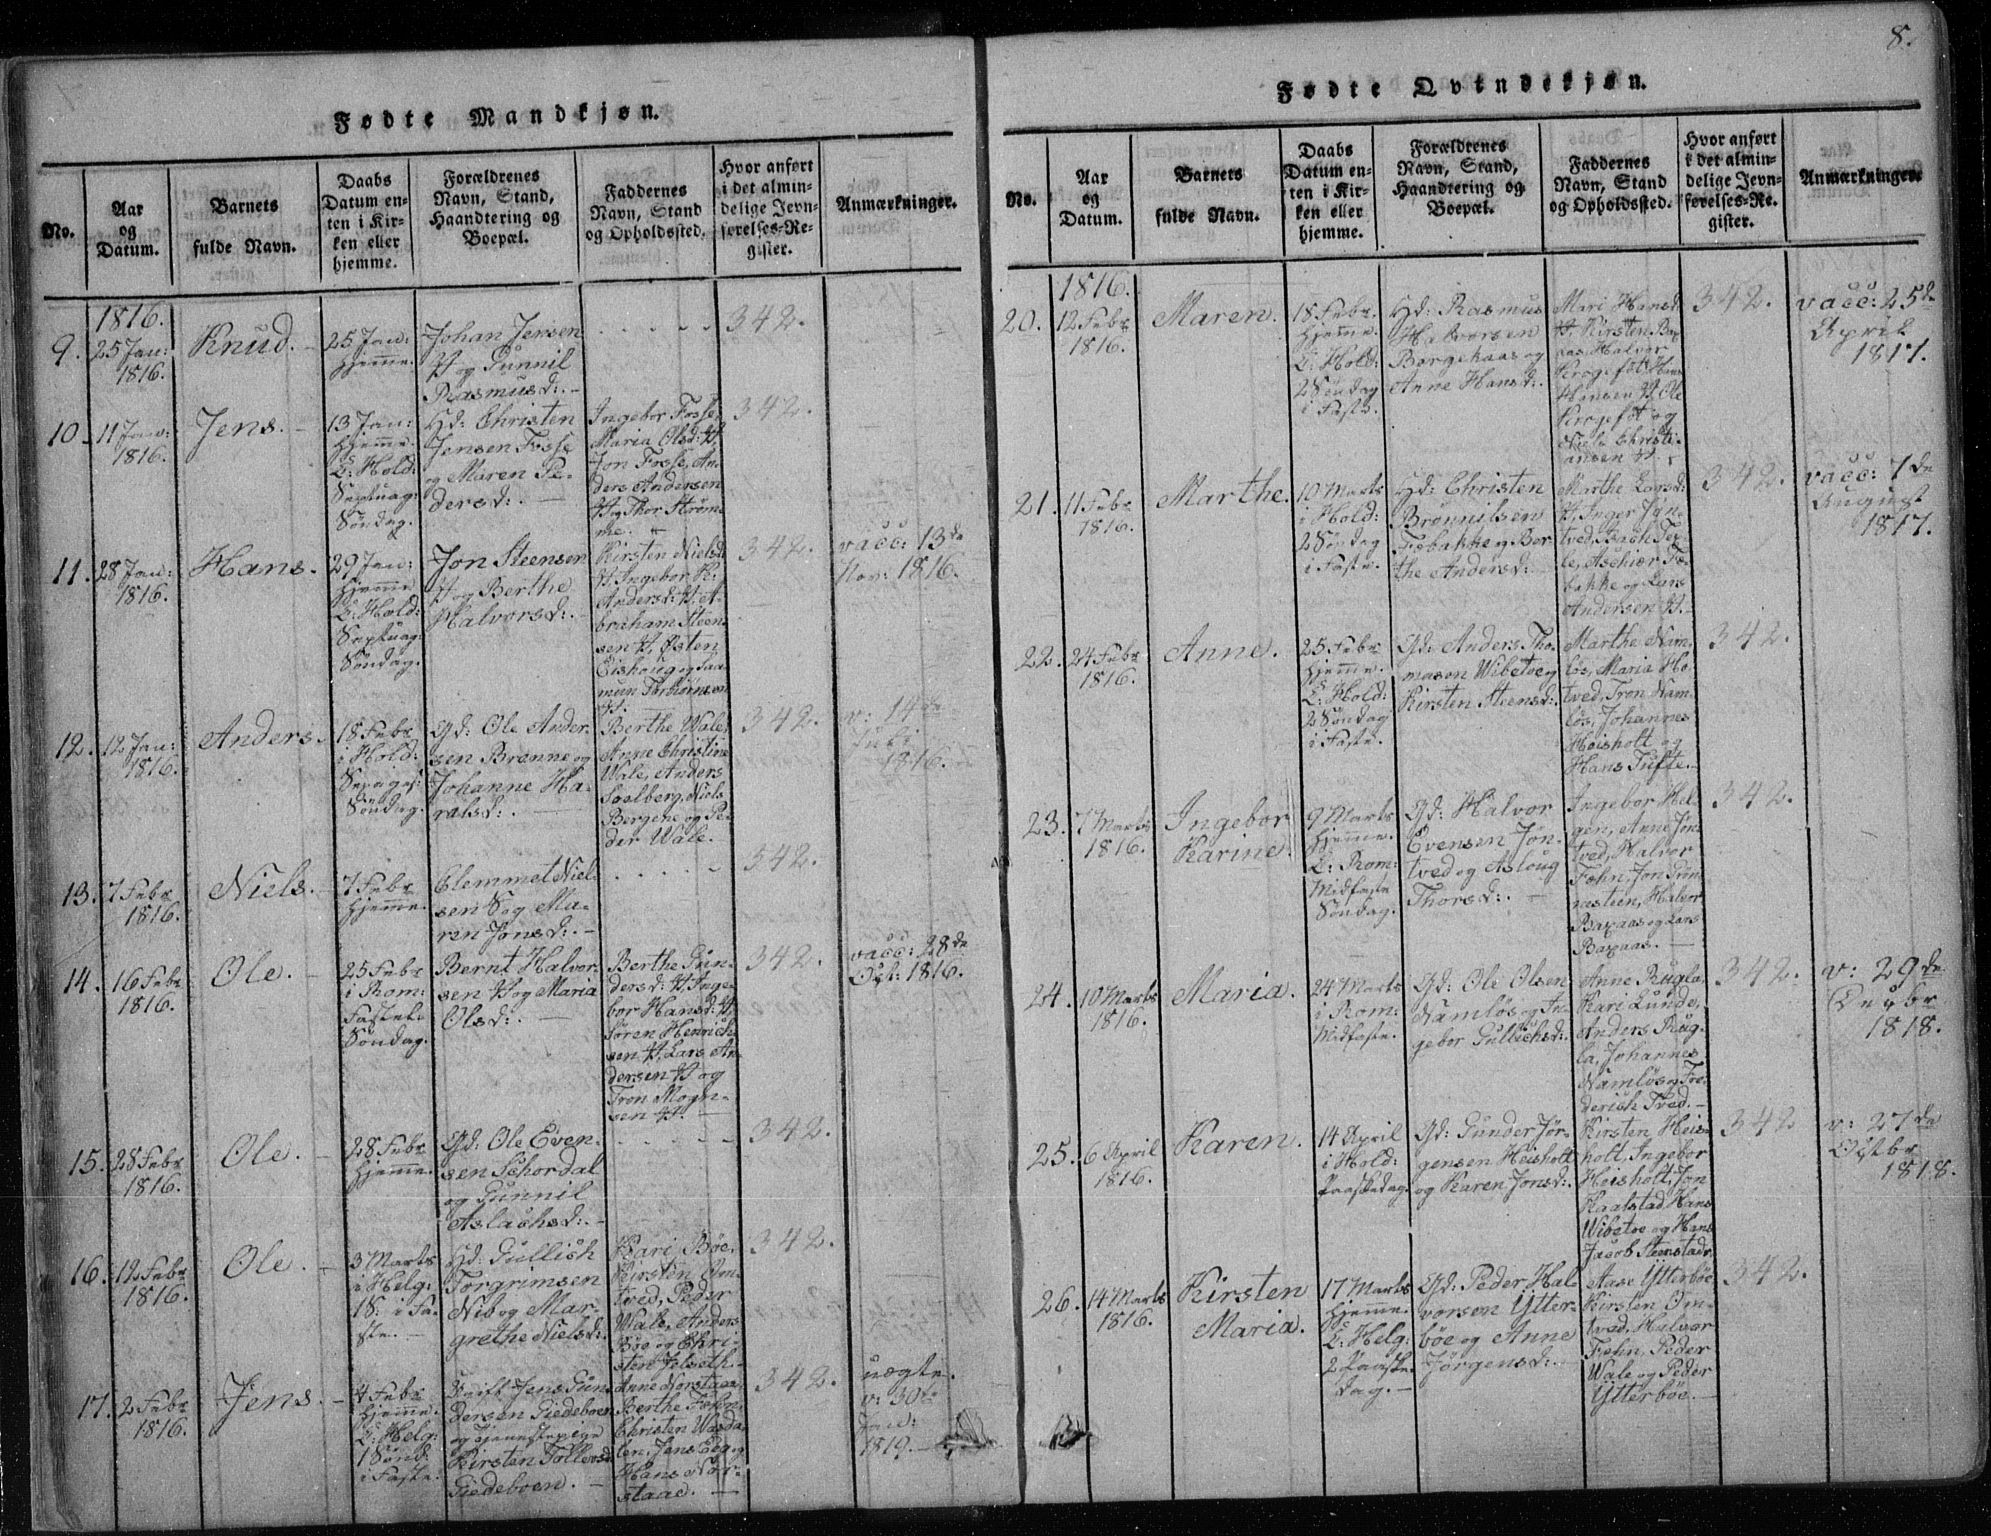 8.
Fødte Mandkjøn.
No.
Aar
og
Datum.
Barnets
fulde Navn.
Daabs
Datum en-
ten i Kir-
ken eller
hjemme.
Forældrenes
Navn, Stand,
Haandtering og
Boepæl.
Faddernes
Navn, Stand
og Opholdssted.
Hvor anført
i det almin-
delige Jevn-
førelses-Re-
gister.
Anmærkninger.
1816.
9.
25 Jan:
1816.
Knud.
25 Jan:
hjemme.
Johan Jensen
og Gunnil
Rasmusd:.
342.
10.
11 Jan:
1816.
Jens.
13 Jan:
hjemme.
i Hold:
Septuag:
Søndag.
Hd: Christen
Jensen Fosse
og Maren Pe-
dersd:.
Ingebor Fosse,
Maria Olsd:
Jon Fosse, An-
ders Andersen
og Thor Strøm-
me.
342.
11.
28 Jan:
1816.
Hans.
29 Jan:
hjemme.
Hold:
Septuag:
Søndag.
Jon Steensen
og Berthe
Halvorsd:.
Kirsten Nielsd:
Ingebor K:
Andersd: A-
braham Steen-
sen, Østen
Eishoug og Saa-
mun Torbiörnsen
342.
vacc: 13de
Nov: 1816.
12.
12 Jan:
1816.
Anders.
18 Febr
i Hold:
Søndag.
Gd: Ole Ander-
sen Brenne og
Johanne Ha-
ralsd:.
Berthe Wale,
Anne Christine
Wale, Anders
Soelberg, Niels
Bergene og Pe-
der Wale.
342.
v: 14de
1816.
13.
7 Febr
1816.
Niels.
7 Febr
hjemme.
Clemmet Niel-
sen og Ma-
ren Jonsd:.
342.
14.
16 Febr
1816.
Ole.
25 Febr
i Rom:
Fastel:
Søndag.
Bernt Halvor-
sen og Maria
Olsd:.
Berthe Gun-
dersd: Inge-
bor Hansd:
Søren Henrich-
sen, Lars An-
dersen og
Tron Mogn-
sen
342.
vacc: 28de
Oct: 1816.
15.
28 Febr
1816.
Ole.
28 Febr
hjemme.
Gd: Ole Even-
sen Schordal
og Gunnil
Aslachsd:.
342.
16.
12 Febr
1816.
Ole.
3 Marts
i Helg:
1 S: i Fa-
ste.
Hd: Gullich
Torgrimsen
Nib og Mar-
grethe Nielsd:.
Kari Böe,
Kirsten Om-
tved, Peder
Wale, Anders
Böe og Chri-
sten Jelseth.
342.
17.
2 Febr
1816.
Jens.
4 Febr
hjemme.
Helg:
1 Sönd:
i Faste.
Ugift Jens Gun-
dersen Giedeboen
og Tjenestepige
Kirsten Tollevsd:
Giedeboen.
Anne Norstaae,
Berthe
Christen Wasda-
len, Jens Eeg og
Hans Nor-
staae.
342.
uægte.
v: 30te
Jan:
1819.
Fødte Qvindekjøn.
No.
Aar
og
Datum.
Barnets
fulde Navn.
Daabs
Datum en-
ten i Kir-
ken eller
hjemme.
Forældrenes
Navn, Stand,
Haandtering og
Boepæl.
Faddernes
Navn, Stand
og Opholdssted.
Hvor anført
i det almin-
delige Jevn-
førelses-Re-
gister.
Anmærkninger.
1816.
20.
12 Febr
1816.
Maren.
18 Febr
hjemme.
Hold:
2 Søndag
i Faste.
Hd: Rasmus
Halvorsen
Borgekaas og
Anne Hansd:.
Mari Hansd:
Kirsten
Halvor
Krogefot, Hans
Hansen, Ole
Krogefot og
Niels Christi-
ansen
342.
vacc: 25de
April
1817.
21.
11 Febr
1816.
Marthe.
10 Marts
i Hold:
2 Søndag
i Faste.
Hd: Christen
Brönnilsen
Febakke og Ber-
the Andersd:.
Marthe Larsd:
Inger Jyn-
tved,
Aschier Fe-
bakke og Lars
Andersen
342.
vacc: 7de
August
1817.
22.
24 Febr
1816.
Anne.
25 Febr
hjemme.
Hold:
2 Søndag
i Faste.
Gd: Anders Tho-
masen Wibetoe og
Kirsten Steensd:.
Marthe Nam-
lös, Maria Ho-
tved, Tron Nam-
lös, Johannes
Heisholt og
Hans Tufte.
342.
23.
7 Marts
1816.
Ingebor
Karine.
9 Marts
hjemme.
Rom:
Midfaste
Söndag.
Gd: Halvor
Evensen Jön-
tved og Asloug
Thorsd:.
Ingebor Hel-
gen, Anne Jön-
tved, Halvor
Fehn, Jon Grim-
nasteen, Halvor
Baxaas og Lars
Baxaas.
342.
24.
10 Marts
1816.
Maria.
24 Marts
i Rom:
Midfaste.
Gd: Ole Olsen
Namlös og In-
gebor Gullichsd:.
Anne Rugla,
Kari Lunde,
Anders Rug-
la, Johannes
Namlös og Fre-
derich Tved.
342.
v: 29de
1818.
25.
6 April
1816.
Karen.
14 April
i Hold:
Paaskedag.
Gd: Gunder Jör-
gensen Heisholt
og Karen Jonsd:.
Kirsten Heis-
holt, Ingebor
Heisholt, Jon
Kaalstad, Hans
Wibetoe og Hans
Jacob Steenstad.
342
v: 27de
Octbr
1818.
26.
14 Marts
1816.
Kirsten
Maria.
17 Marts
hjemme.
Helg:
2 Paaske-
dag.
Gd: Peder Hal-
vorsen Ytter-
böe og Anne
Jörgensd:.
Aase Ytterböe,
Kirsten Om-
tved, Halvor
Fehn, Peder
Wale og Peder
Ytterböe.
342.